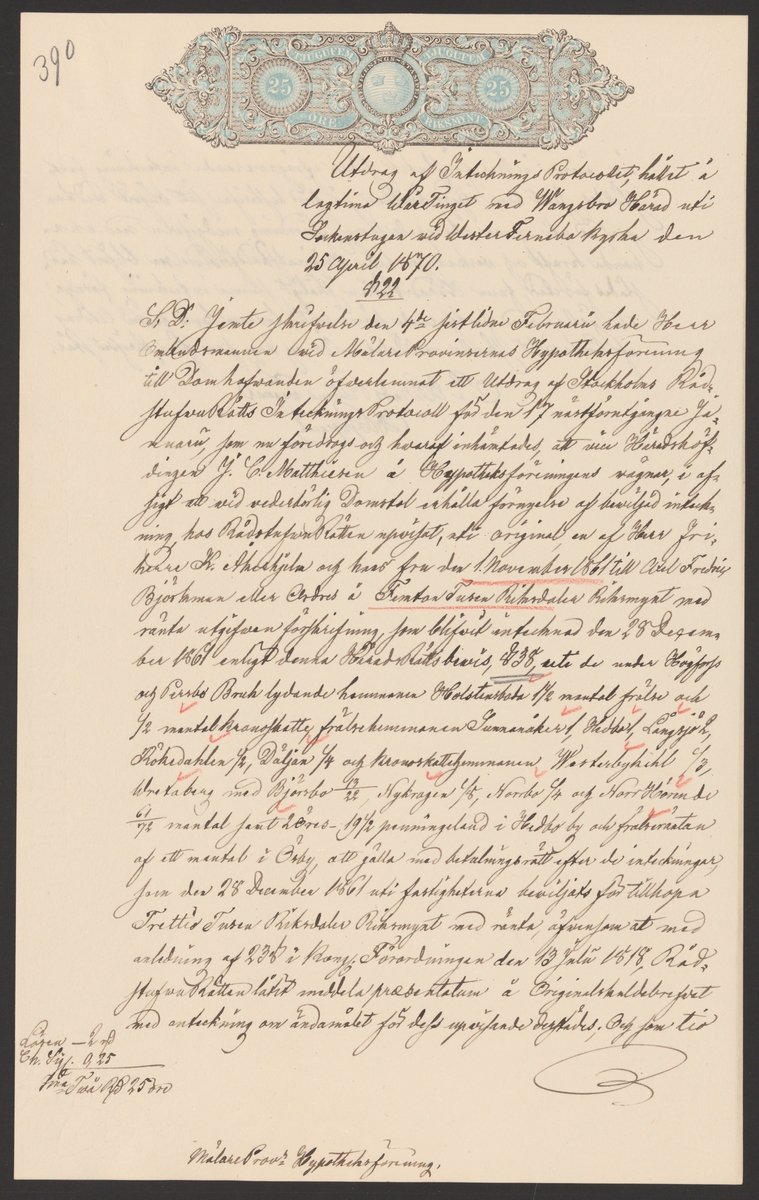 390
TJUGUFEM TJUGUFEM
25 25
ÖRE RIKSMYNT
Utdrag af Intecknings Protocollet, hållet å
lagtima WårTinget med Wangsbro Härad uti
Sockenstugan vid Wester Fernebo Kyrka den
25 April 1870.
§ 22
S. D. Jemte skrifvelse den 4de sistlidne Februarii hade Herr
Ombudsmannen vid MälareProvinsernas Hypotheksförening
till Domhafwanden öfverlemnat ett Utdrag af Stockholms Råd-
stufvuRätts IntecknringsProtocoll för den 17 nästförutgångne Ja-
nuarii, som nu föredrogs och hvaraf inhämtades, att vice Häradshöf-
dingen J. C. Matthiesen å Hypotheksföreningens vägnar, i af-
sigt att vid vederbörlig Domstol erhålla förnyelse af beviljad inteck-
ning, hos RådstufvuRätten upvisat, uti original en af Herr Fri-
herre K. Åkerhjelm och hans fru den 1 November 1861 till Axel Fredric
Björkman eller Ordres å Femton Tusen Riksdaler Riksmynt med
ränta utgifven förskrifning, som blifvit intecknad den 28 Decem-
ber 1861 enligt denna HäradsRätts bevis, § 38, uti de under Högfors
och Persbo Bruk lydande hemmanen Holstensboda 1 1/2 mantal frälse och
1/2 mantal kronoskatte, frälsehemmanen Sunnanåker 1, Heddet 1, Långsjö 2,
Rökedahlen 1/2, Däljan 1/4 och kronoskattehemmanen, Westerbykihl 1/3,
Wretaberg med Björsbo 13/22, Nykrogen 1/8, Norrbo 1/4 och Norr Hörende
61/72 mantal samt 2 öres - 19 1/2 penningeland i Hedbo by och frälseräntan
af ett mantal i Österby, att gälla med betalningsrätt efter de inteckningar,
som den 28 December 1861 uti fastigheterna beviljats för tillhopa
Trettio Tusen Riksdaler Riksmynt med ränta, äfvensom at med
anledning af 23 § i Kongl. Förordningen den 13 Julii 1818, Råd-
stufvuRätten låtit meddela præsentatum å Originalskuldebrefvet
med anteckning om ändamålet för dess upvisande derstädes; Och som tio
Lösen — 2 rd
Ch. Sig. 0,25
Sma Två Rd 25 öre
MälareProvs Hypotheksförening.